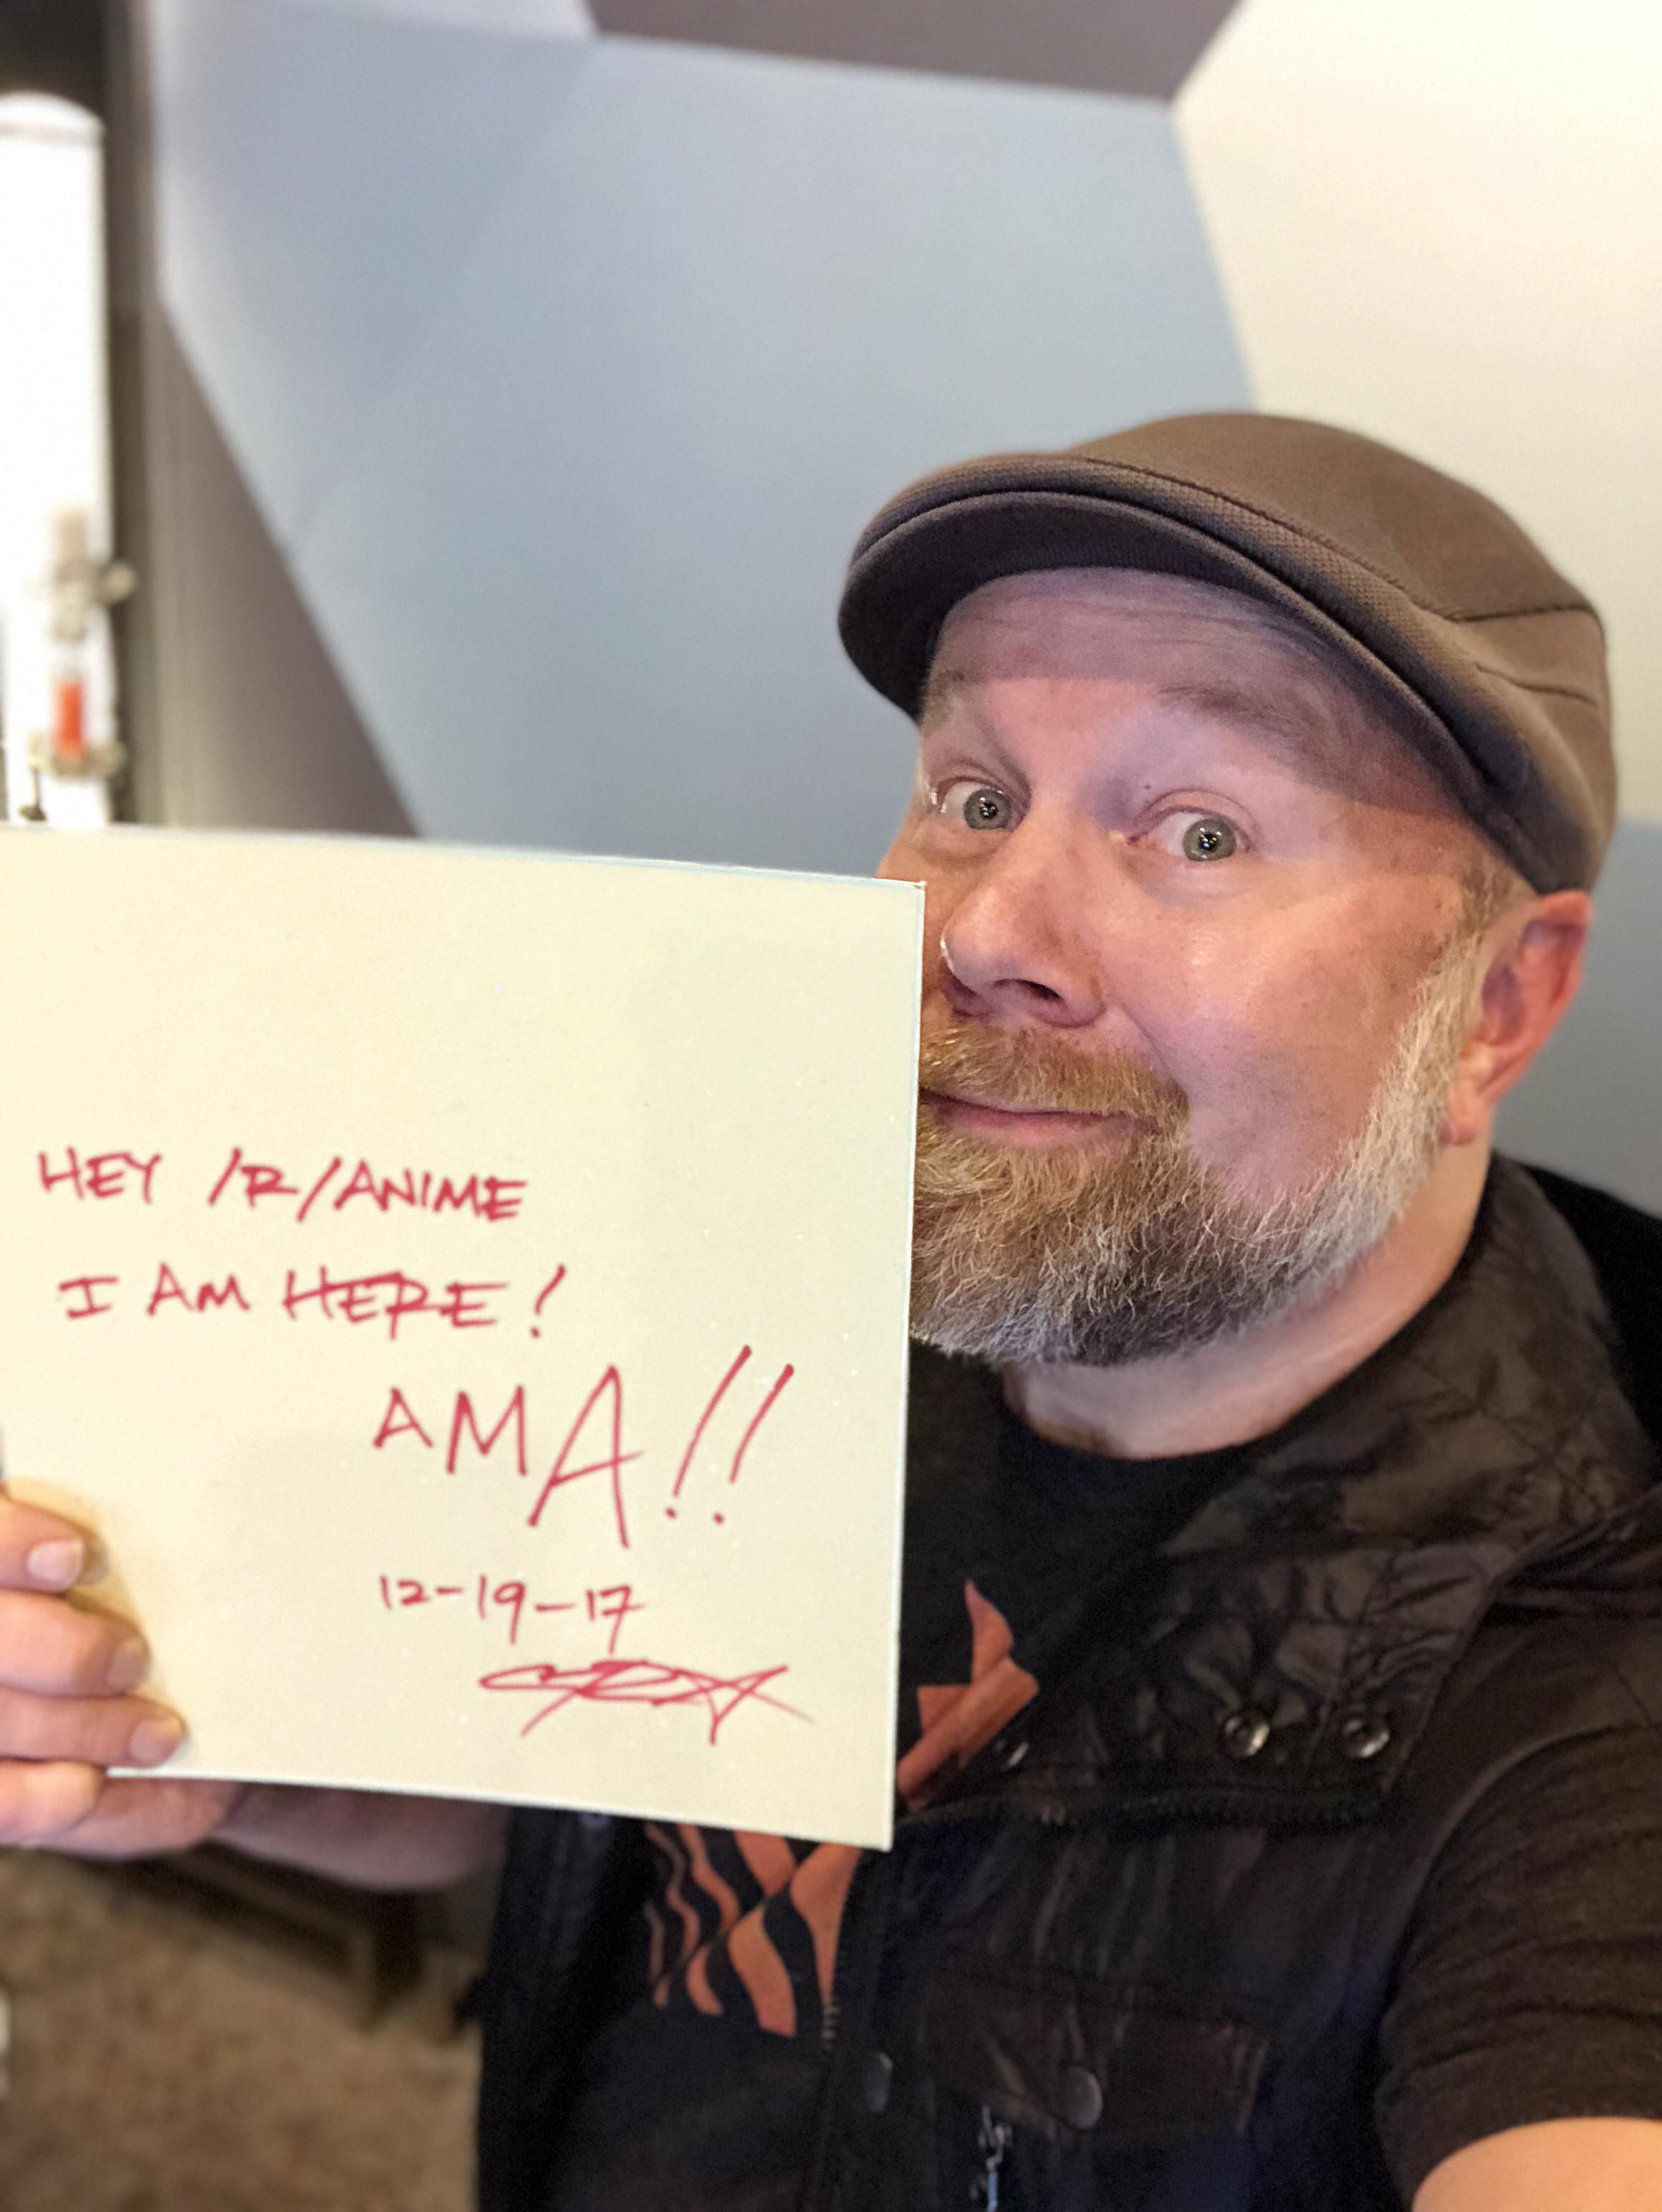 HEY /R/ANIME
I AM HERE!
AMA!!
12-19-17